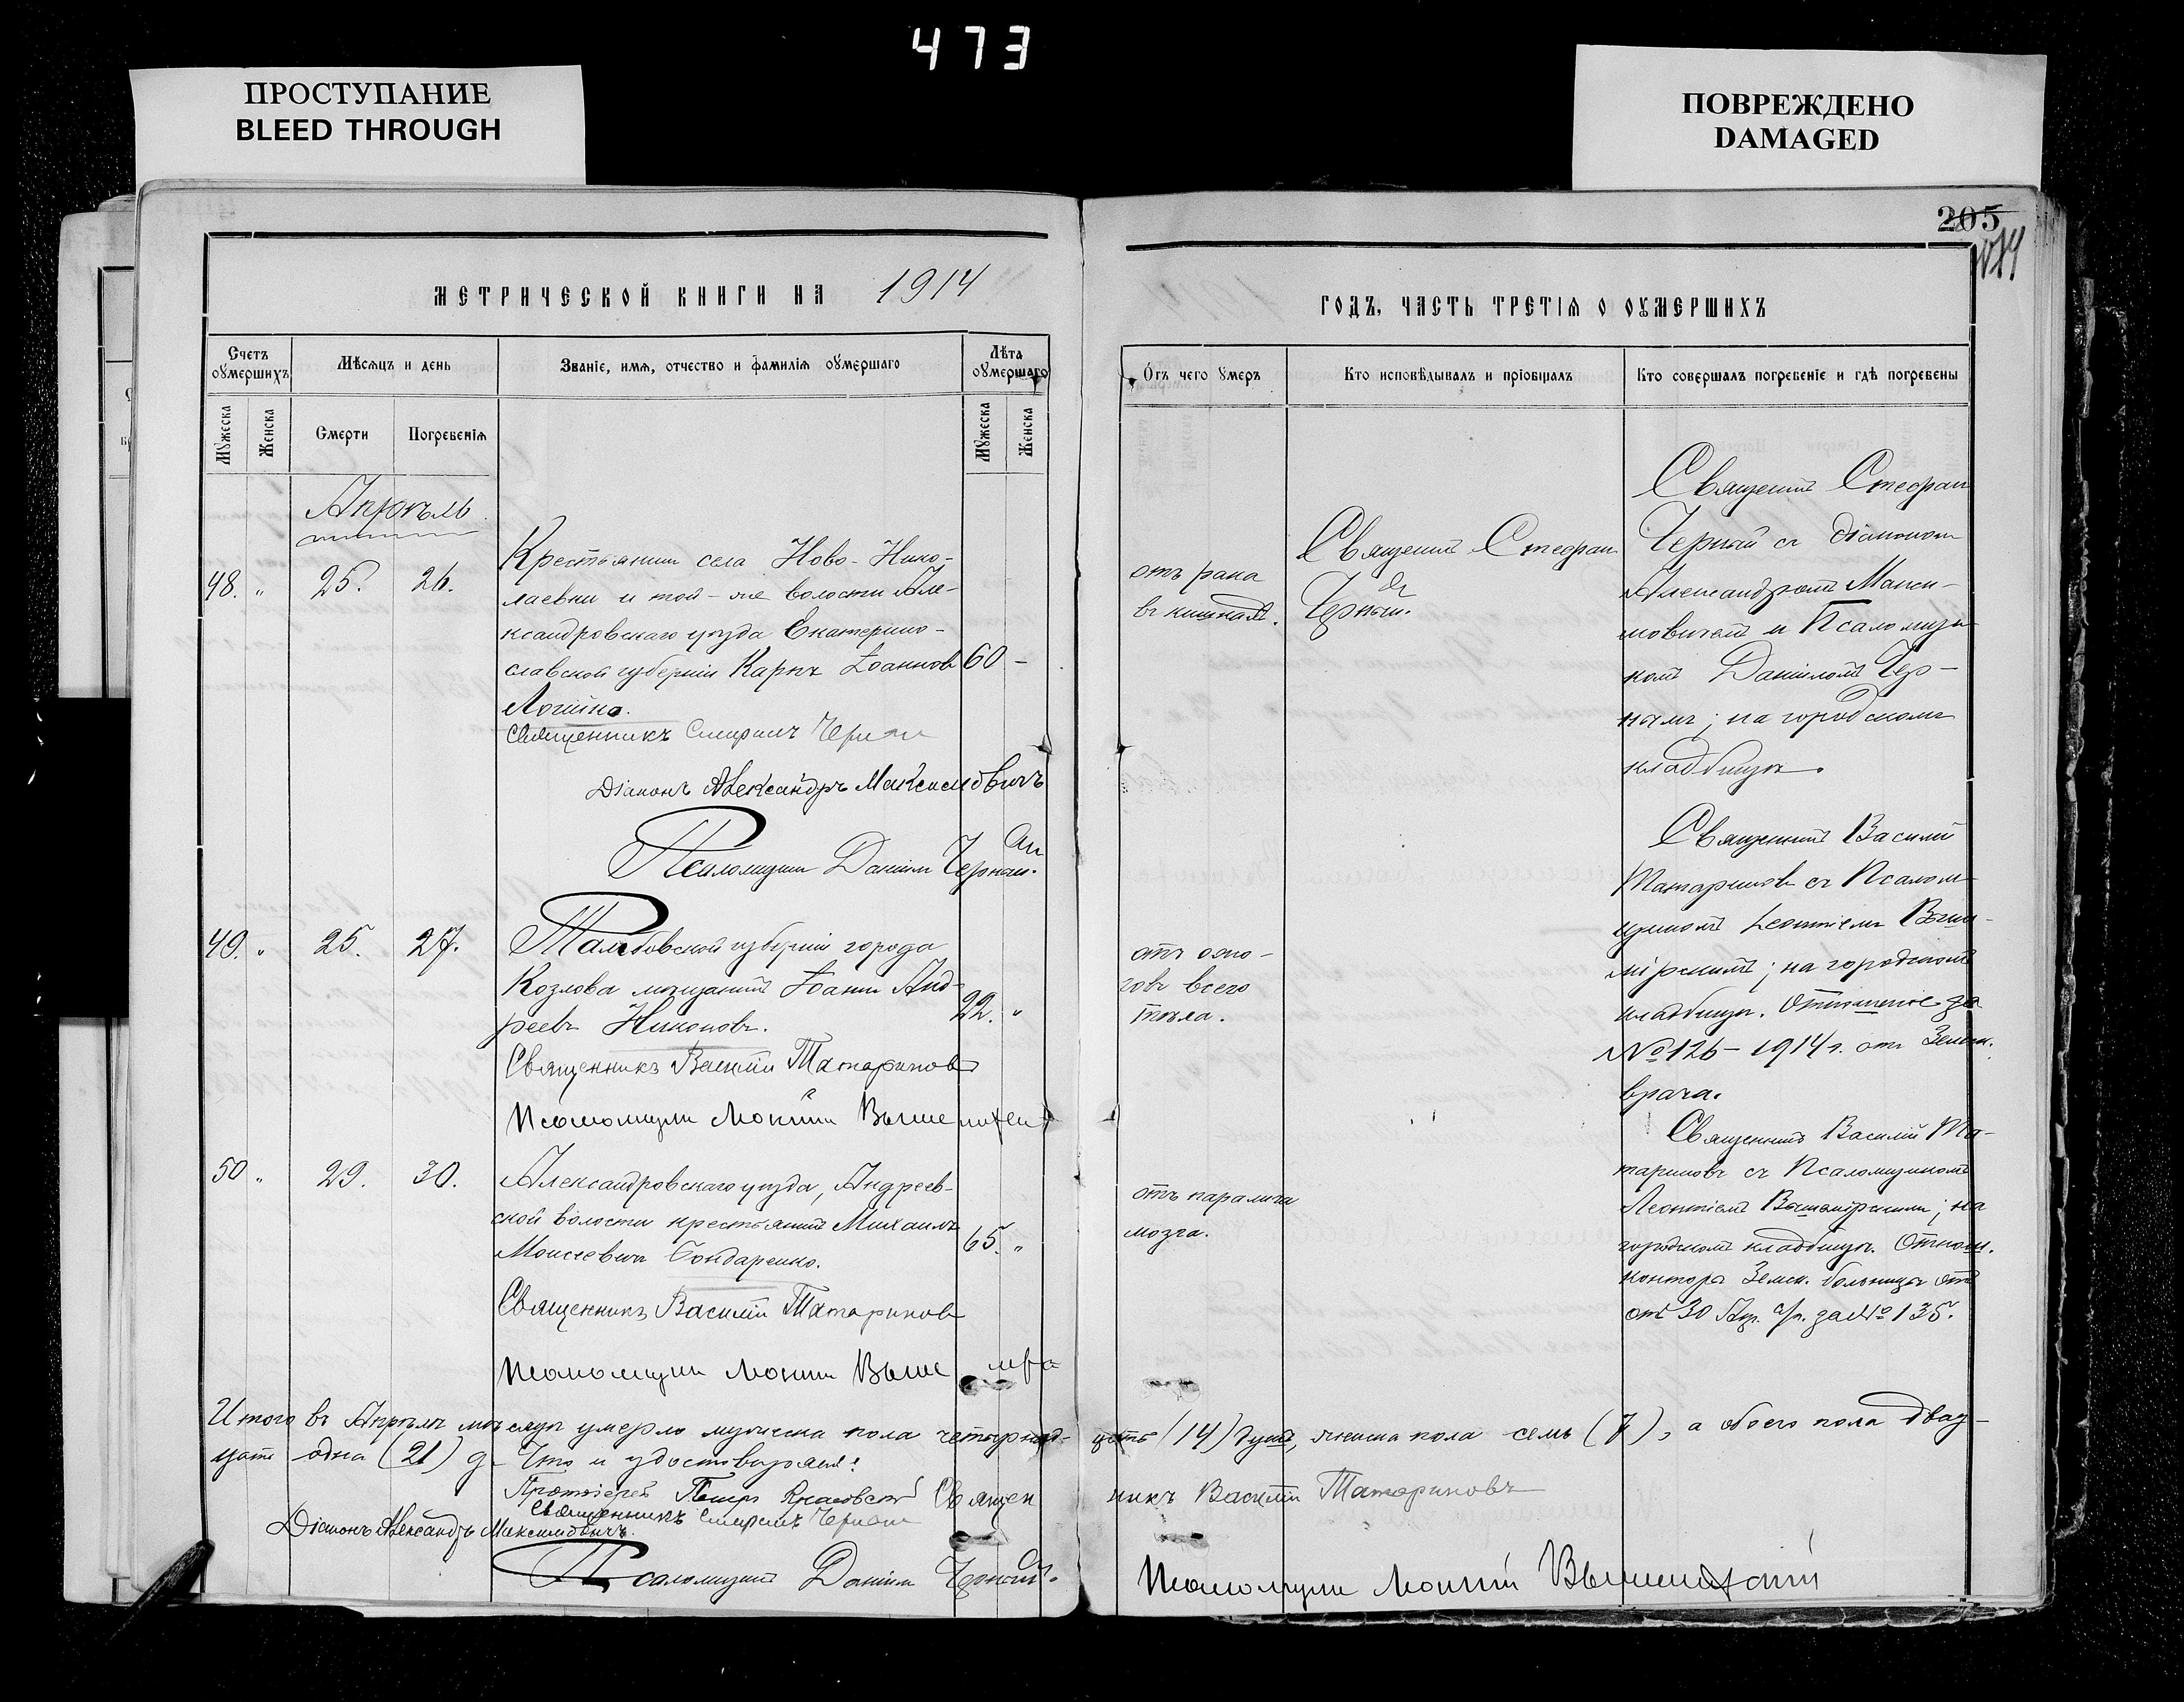 473
ПРОСТУПАНИЕ
BLEED THROUGH
ПОВРЕЖДЕНО
DAMAGED
205
МЕТРИЧЕСКОЙ КНИГИ НА 1914
ГОДЪ, ЧАСТЬ ТРЕТІЯ О ОУМЕРШИХЪ
Счетъ оумершихъ
Мѣсяцъ и день
Званіе, имя, отчество и фамилія оумершаго
Лѣта оумершаго
Отъ чего умеръ
Кто исповѣдывалъ и пріобщалъ
Кто совершалъ погребеніе и гдѣ погребены
Мужеска
Женска
Смерти
Погребенія
Мужеска
Женска
Апрѣль
48. „ 25. 26.
Крестьянинъ села Ново-Нико-
лаевки и той-же волости Але-
ксандровскаго уѣзда Екатерино-
славской губерніи Карпъ Іоанновъ 60 –
Священникъ Стефанъ Черный
Діаконъ Александръ Максимовичъ
Псаломщикъ Даніилъ Черный.
отъ рака
въ кишкахъ.
Священникъ Стефанъ
Черный.
Священникъ Стефанъ
Черный съ діакономъ
Александромъ Макси-
мовичемъ и Псаломщи-
комъ Даніиломъ Чер-
нымъ; на городскомъ
кладбищѣ.
49. „ 25. 27.
Тамбовской губерніи города
Козлова мѣщанинъ Іоаннъ Анд-
реевъ Никоновъ. 22. „
Священникъ Василій Татариновъ
Псаломщикъ
отъ ожо-
говъ всего
тѣла.
Священникъ Василій
Татариновъ съ Псалом-
щикомъ Леонтіемъ Выше-
мірскимъ; на городскомъ
кладбищѣ. Отношеніе за
№ 126 – 1914 г. отъ Земск.
врача.
50 „ 29. 30.
Александровскаго уѣзда, Андреев-
ской волости крестьянинъ Михаилъ
Моисеевичъ Бондаренко. 65. „
Священникъ Василій Татариновъ
Псаломщикъ
отъ паралича
мозга.
Священникъ Василій Та-
тариновъ съ Псаломщикомъ
Леонтіемъ Вышемірскимъ; на
городскомъ кладбищѣ. Отнош.
контора Земск. больницы
отъ 30 Апр. с/г. за № 135.
Итого въ Апрѣлѣ мѣсяцѣ умерло мужеска пола четырнад-
цать (14) душъ, женска пола семь (7), а обоего пола двад-
цать одна (21) д. Что и удостовѣряемъ:
Протоіерей Петръ
Священникъ Василій Татариновъ
Священникъ Стефанъ Черный
Діаконъ Александръ Максимовичъ.
Псаломщикъ Даніилъ Черный.
Псаломщикъ